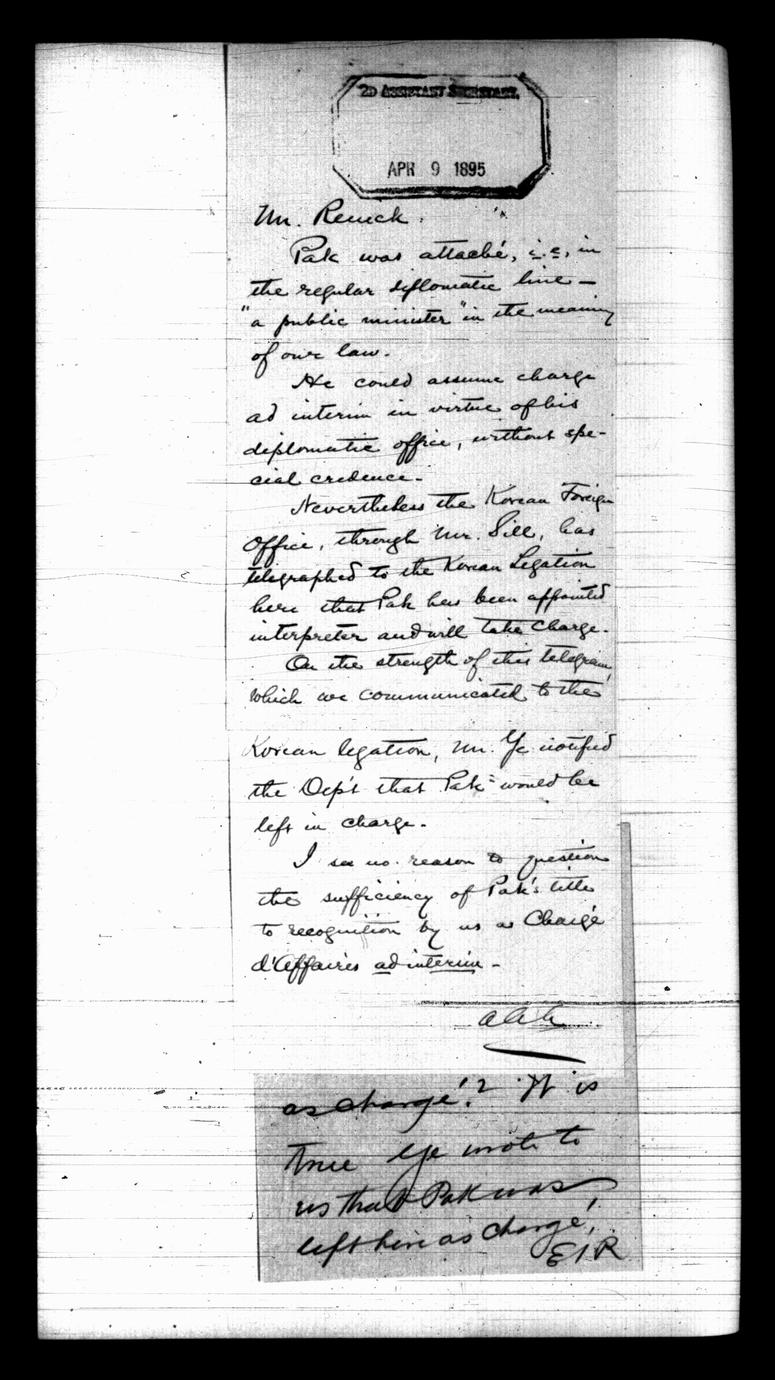 2D ASSISTANT SECRETARY.
APR 9 1895
Mr. Renick.
Pak was attaché, i.e., in
the regular diplomatic line —
"a public minister" in the meaning
of our law.
He could assume charge
ad interim in virtue of his
diplomatic office, without spe-
cial credence.
Nevertheless the Korean Foreign
Office, through Mr. Sill, has
telegraphed to the Korean Legation
here that Pak has been appointed
interpreter and will take charge.
On the strength of this telegram,
which we communicated to the
Korean legation, Mr. Ye notified
the Dep't that Pak would be
left in charge.
I see no reason to question
the sufficiency of Pak's title
to recognition by us as Chargé
d'Affaires ad interim.
AAA
as chargé? It is
true Ye wrote to
us that Pak was
left here as chargé,
EIR